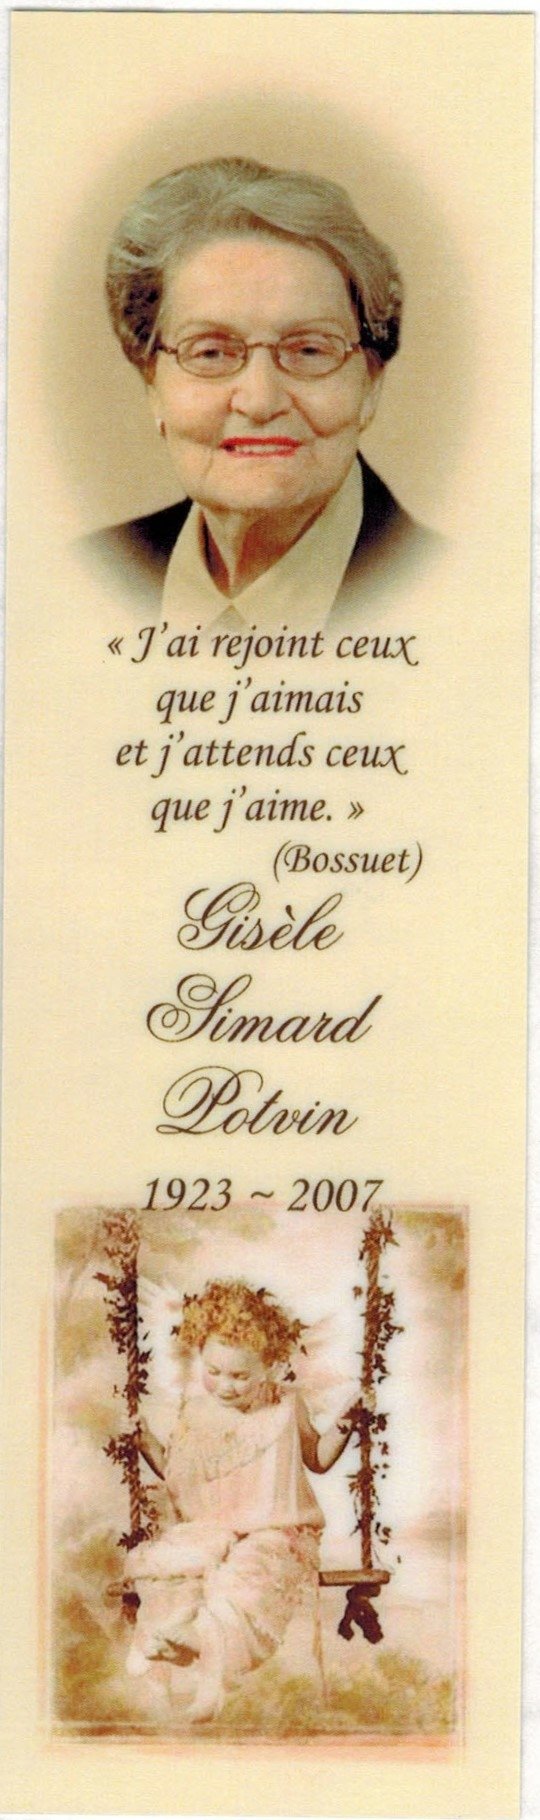 « J'ai rejoint ceux
que j'aimais
et j'attends ceux
que j'aime. »
(Bossuet)
Gisèle
Simard
Potvin
1923 ~ 2007